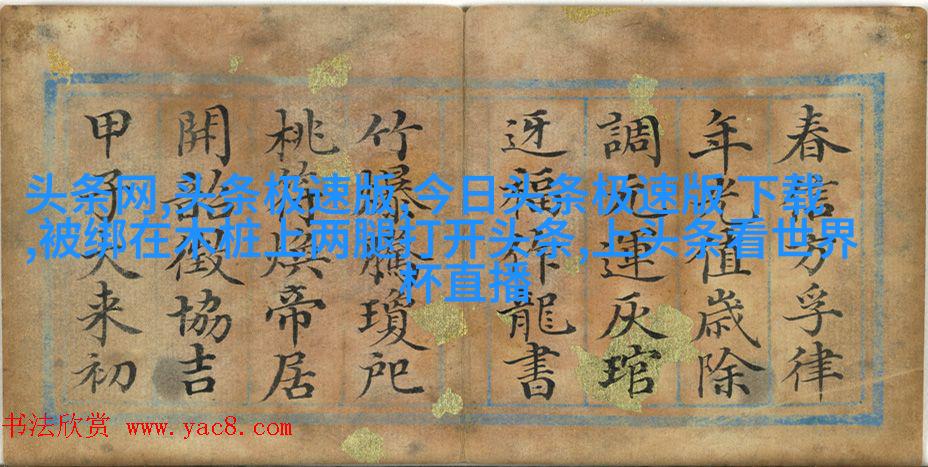 春信方孚律
年光值歲除
調元運灰琯
迓福祚龍書
竹爆騰瓊戺
桃符煥帝居
開韶徵協吉
甲子来初
头条网,头条极速版,今日头条极速版 下载
,被绑在木桩上两腿打开头条,上头条看世界
杯直播
书法欣赏 www.yac8.com